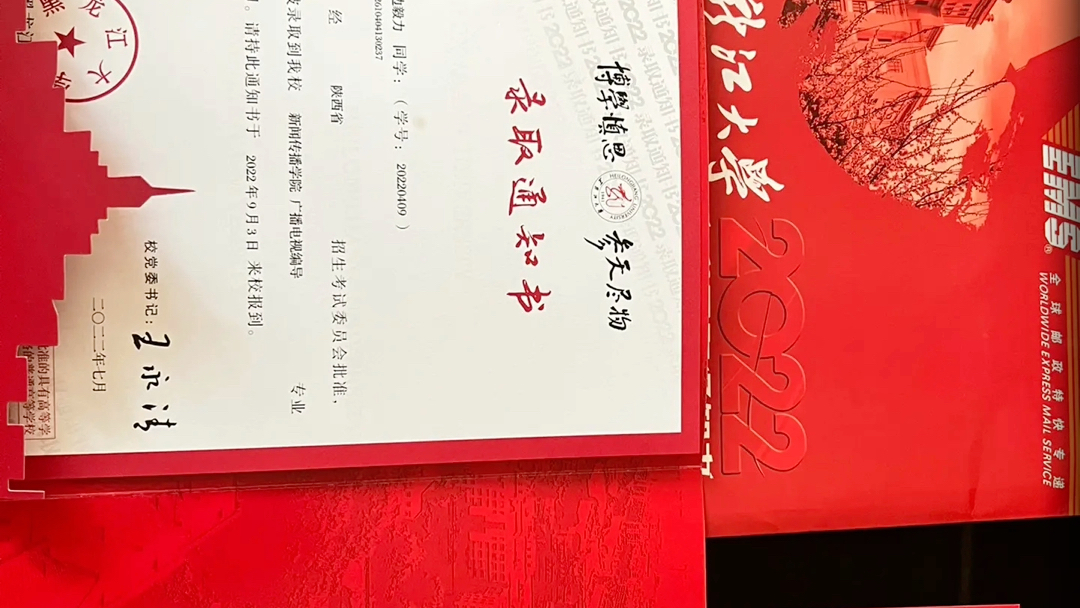 博學慎思 参天尽物
HEILONGJIANG UNIVERSITY
录取通知书
毅力 同学：（学号：20220409）
2610404130237
经 陕西省 招生考试委员会批准，
录取到我校 新闻传播学院 广播电视编导 专业
。请持此通知书于 2022年9月3日 来校报到。
校党委书记：王永清
二〇二二年七月
龙江大
准的具有高等学
江大学
2022
录取通知书
EMS
全球邮政特快专递
WORLDWIDE EXPRESS MAIL SERVICE